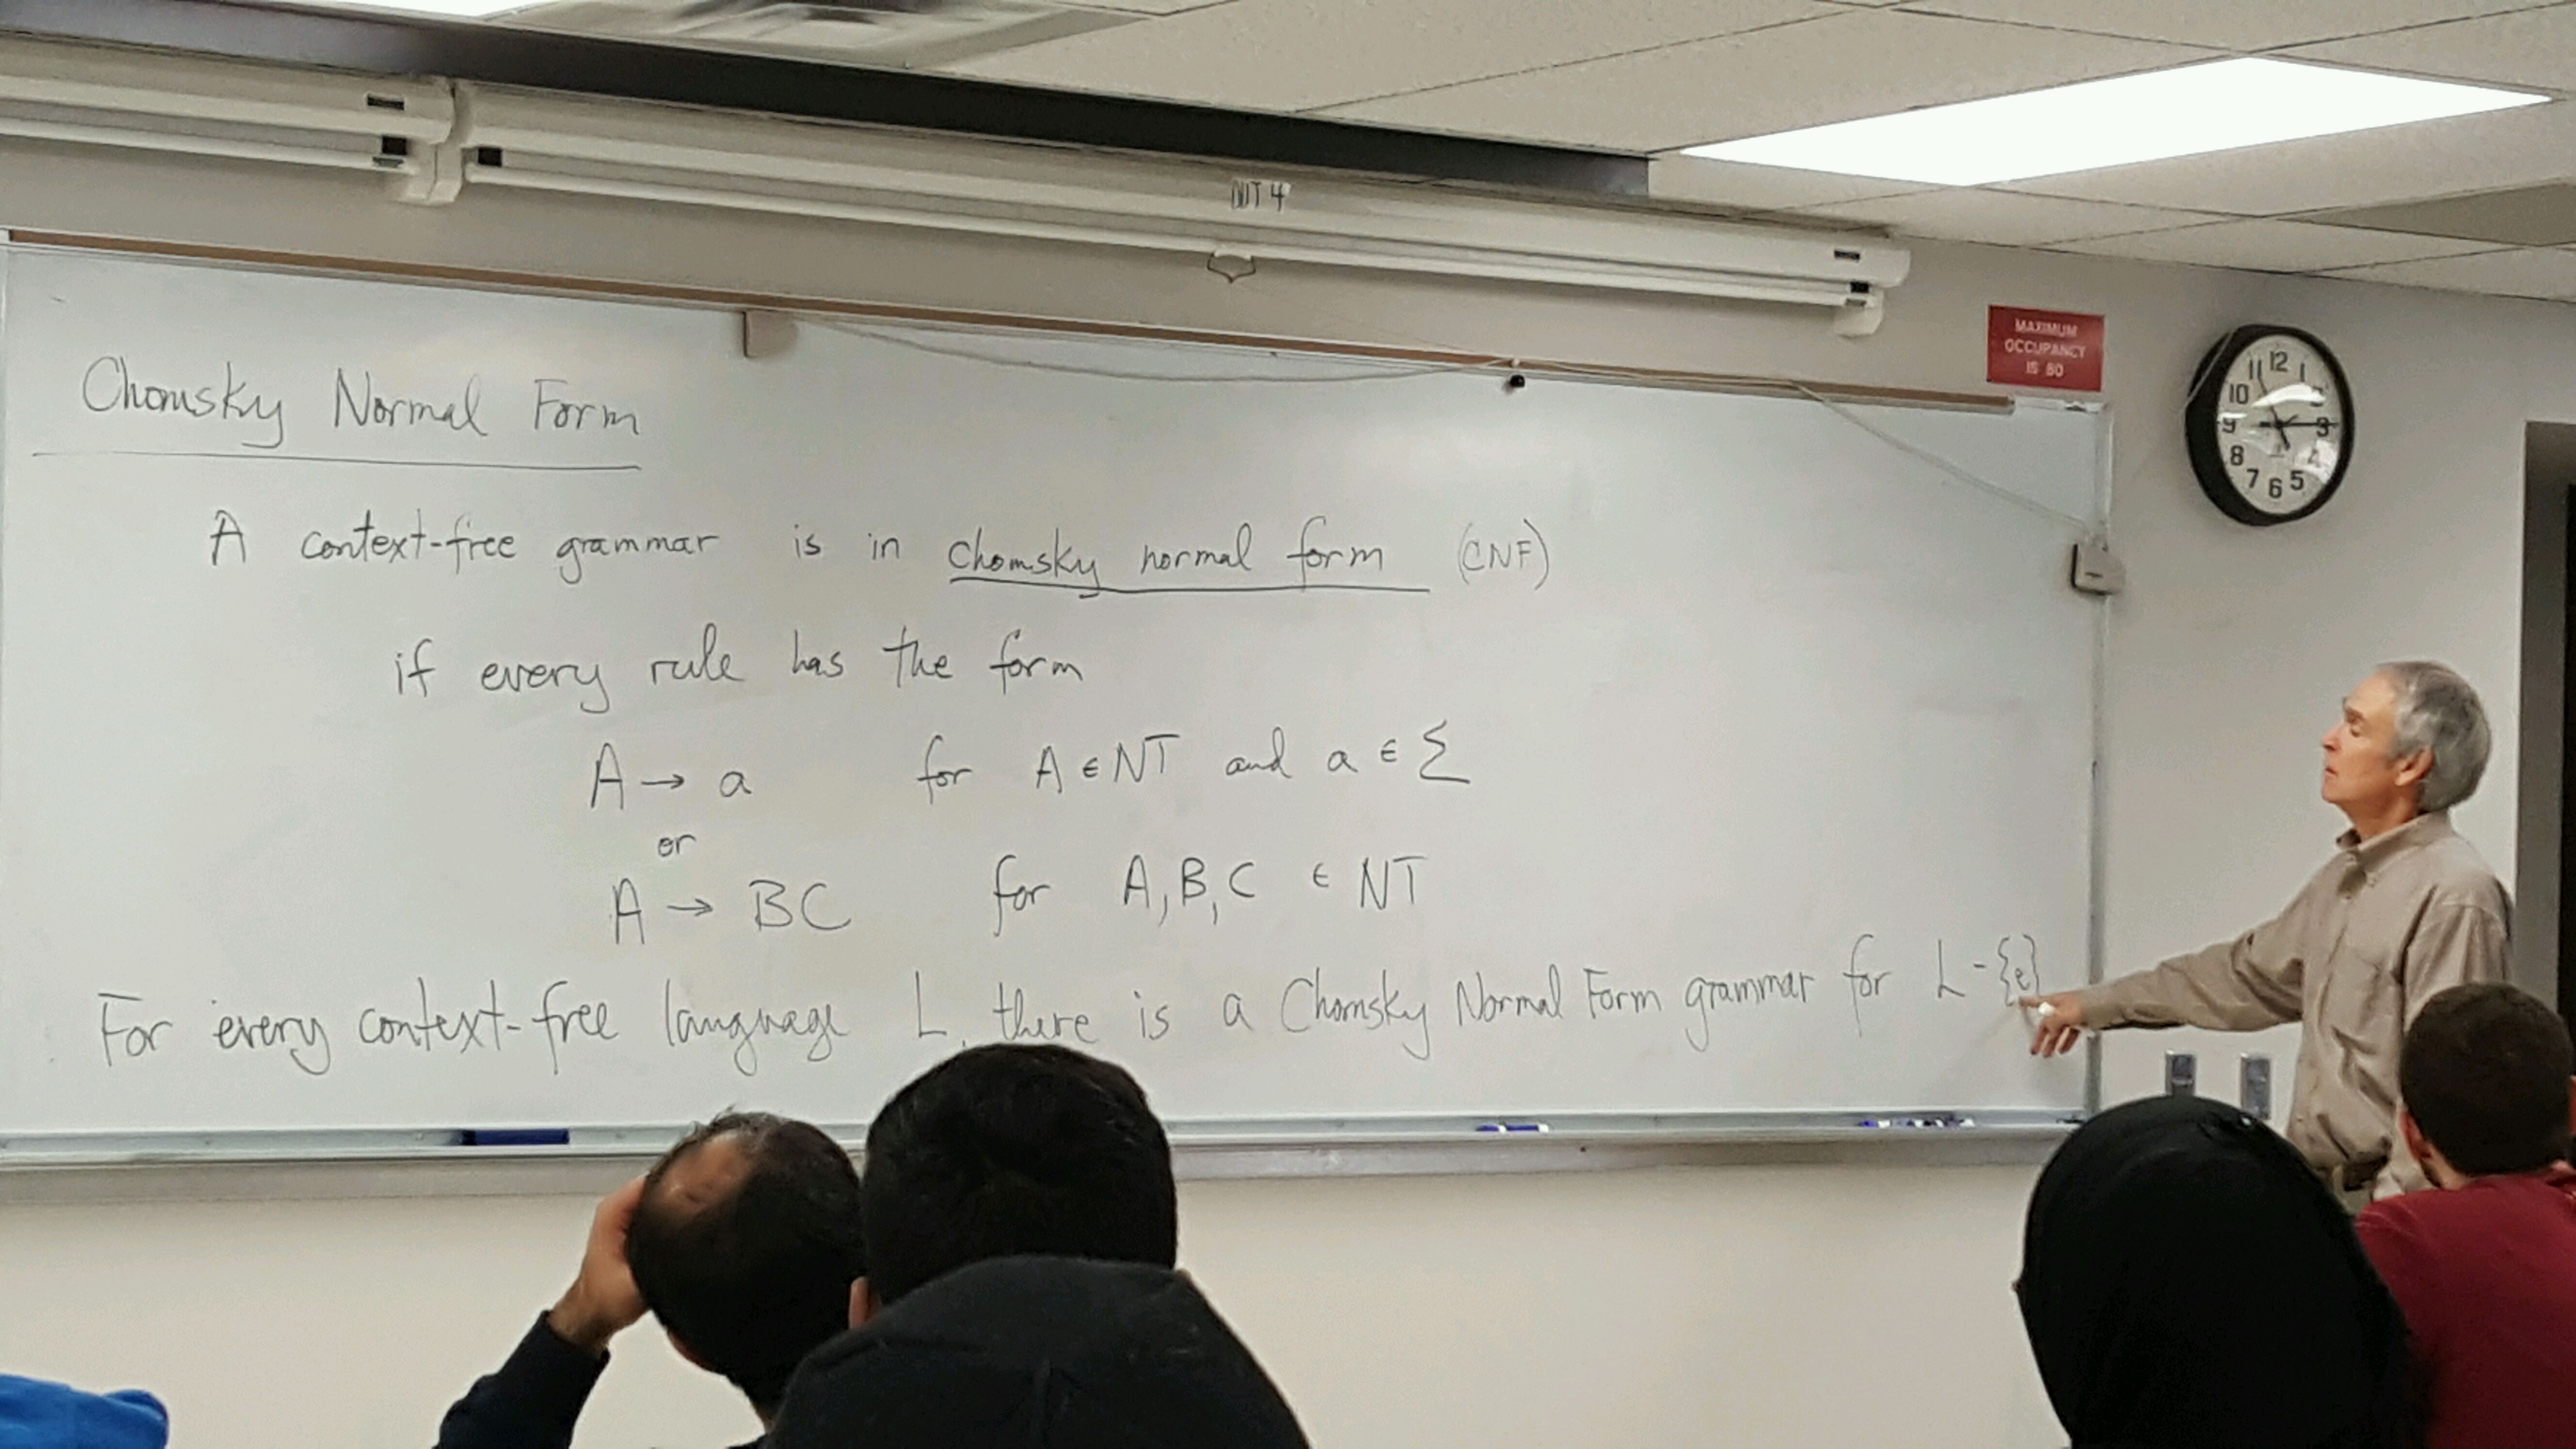 DIT 4
MAXIMUM
OCCUPANCY
IS 80
12
11 1
10
9 3
8 4
7 6 5
Chomsky Normal Form
A context-free grammar is in Chomsky normal form (CNF)
if every rule has the form
A → a for A ∈ NT and a ∈ Σ
or
A → BC for A, B, C ∈ NT
For every context-free language L, there is a Chomsky Normal Form grammar for L - {e}